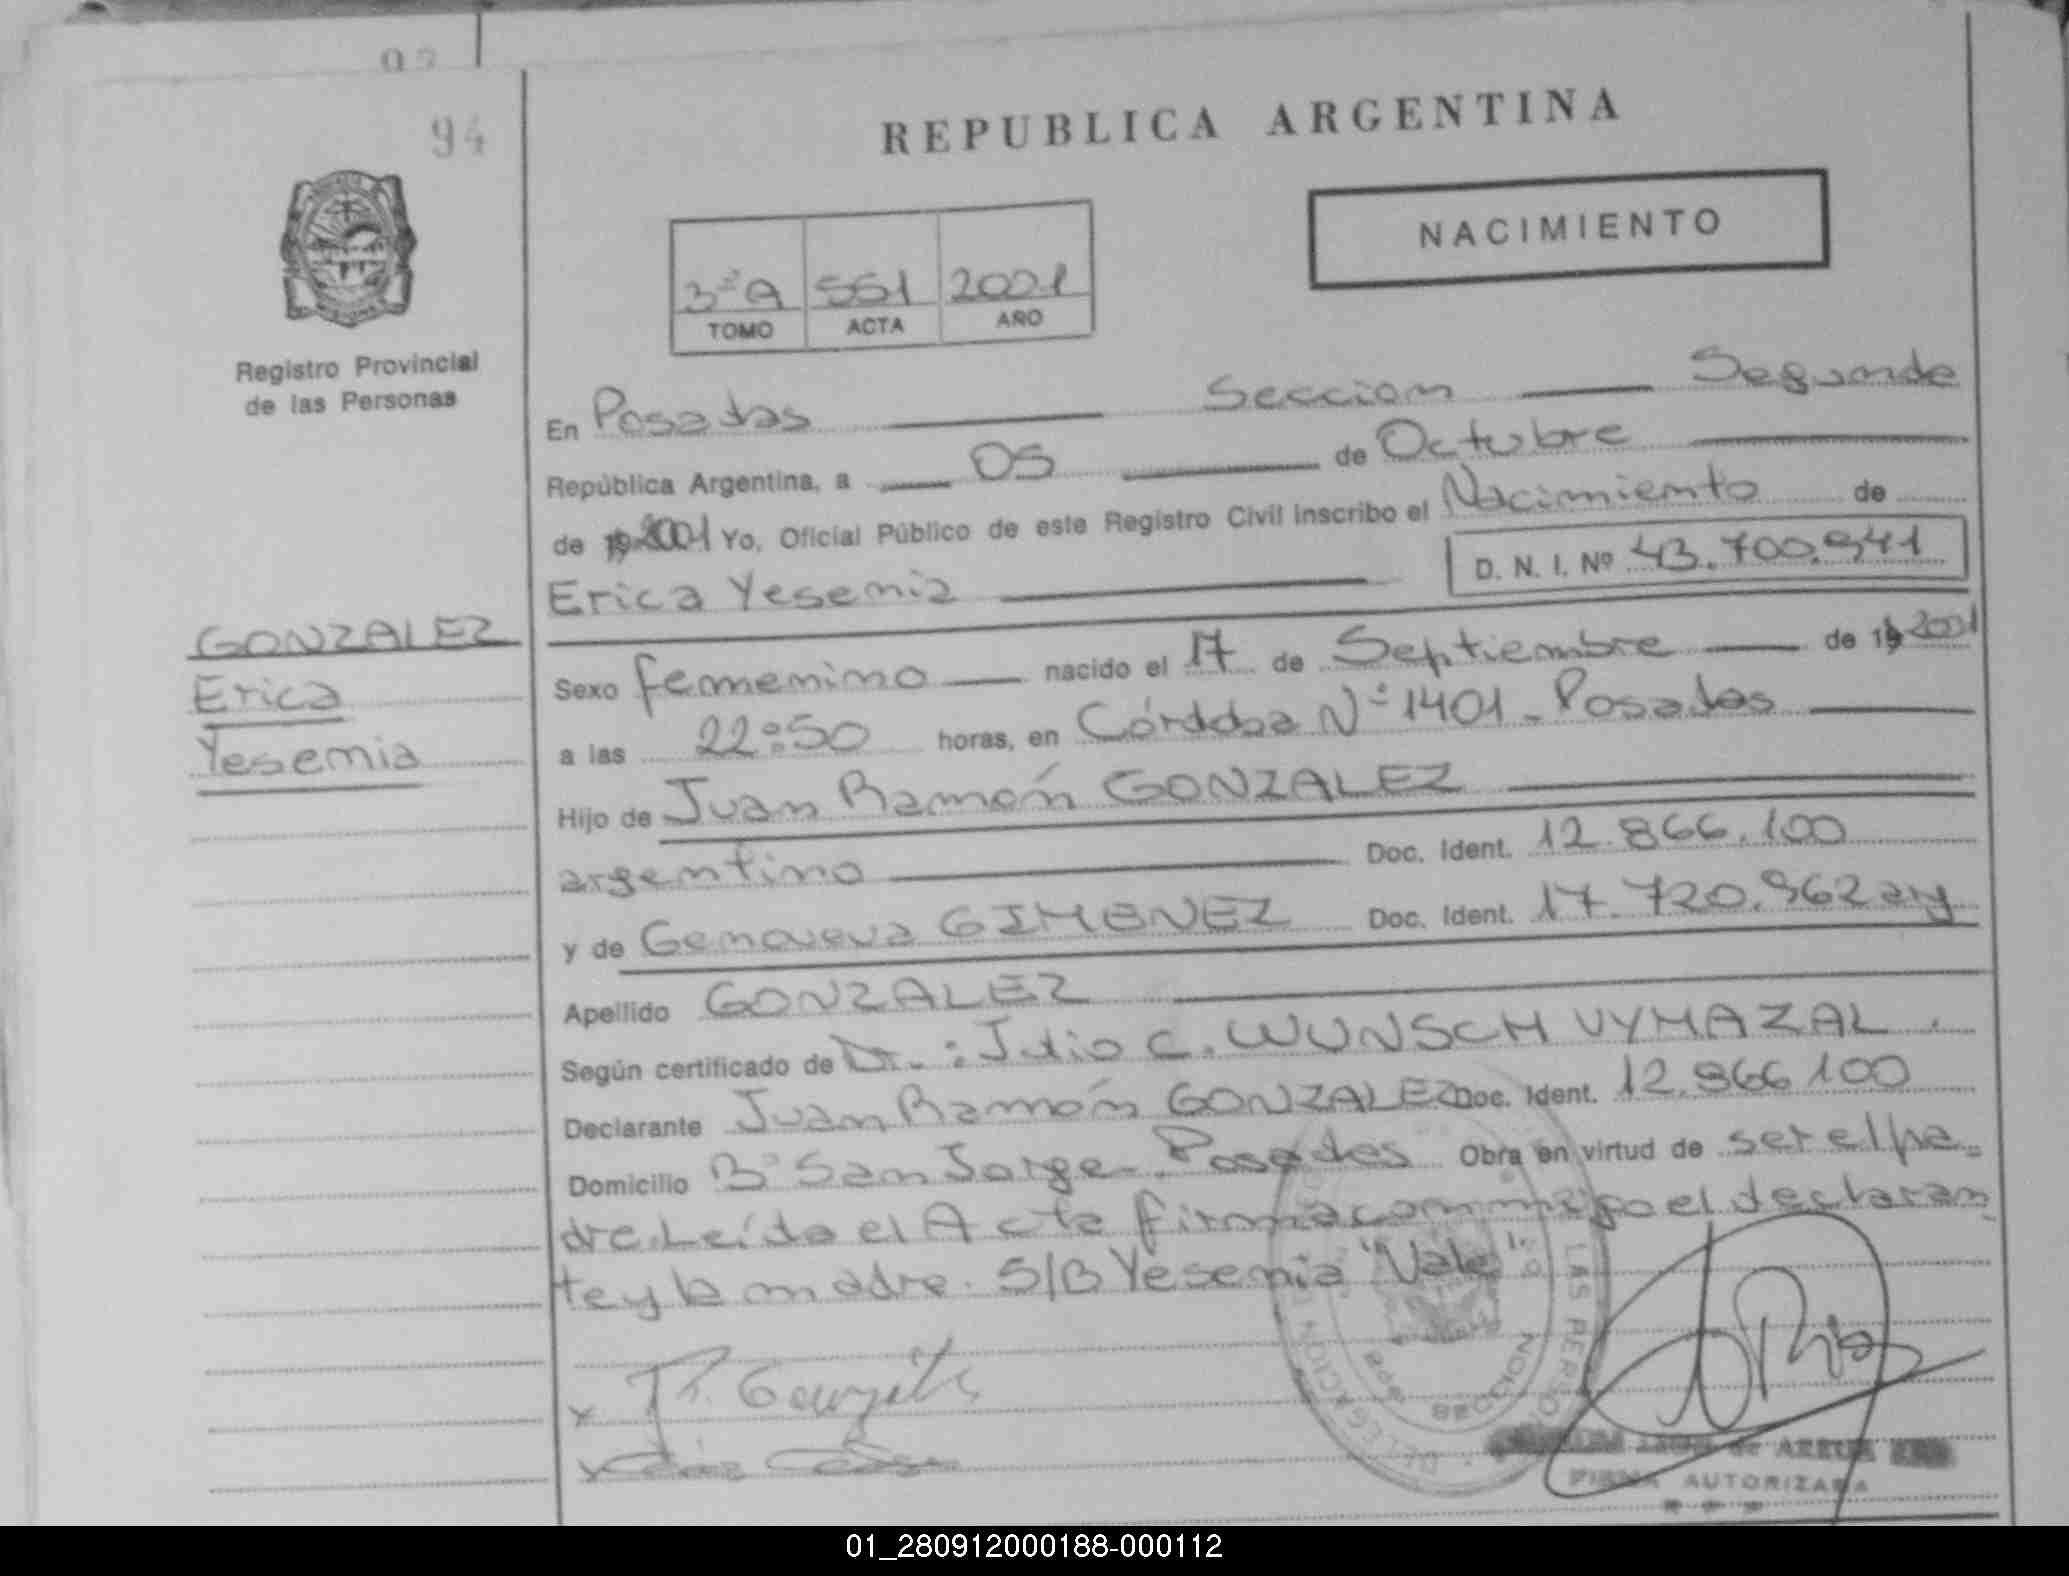 94
REPUBLICA ARGENTINA
NACIMIENTO
3ºA 551 2001
TOMO ACTA AÑO
Registro Provincial
de las Personas
En Posadas Seccion Segunda
República Argentina, a 05 de Octubre
de 2001 Yo, Oficial Público de este Registro Civil inscribo el Nacimiento de
Erica Yesenia D. N. I. Nº 43.700.941
GONZALEZ
Erica
Yesenia
Sexo femenino nacido el 17 de Septiembre de 2001
a las 22:50 horas, en Córdoba Nº 1401 - Posadas
Hijo de Juan Ramón GONZALEZ
argentino Doc. Ident. 12.866.100
y de Genoveva GIMENEZ Doc. Ident. 17.720.962 arg
Apellido GONZALEZ
Según certificado de Dr.: Julio C. WUNSCH VYMAZAL.
Declarante Juan Ramón GONZALEZ Doc. Ident. 12.866.100
Domicilio Bº San Jorge - Posadas Obra en virtud de ser el pa-
dre. Leída el Acta firma conmigo el declaran-
te y la madre. S/B Yesenia "Vale".
FIRMA AUTORIZADA
01_280912000188-000112